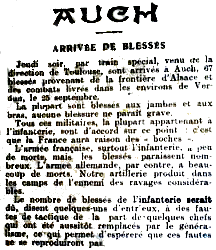 AUCH
ARRIVÉE DE BLESSÉS
Jeudi soir, par train spécial, venu de la
direction de Toulouse, sont arrivés à Auch, 67
blessés provenant de la frontière d'Alsace et
des combats livrés dans les environs de Ver-
dun, le 25 septembre.
La plupart sont blessés aux jambes et aux
bras, aucune blessure ne paraît grave.
Tous ces militaires, la plupart appartenant à
l'infanterie, sont d'accord sur ce point : c'est
que la France aura raison des « boches ».
L'armée française, surtout l'infanterie, a peu
de morts, mais les blessés paraissent nom-
breux. L'armée allemande, par contre, a beau-
coup de morts. Notre artillerie produit dans
les camps de l'ennemi des ravages considéra-
bles.
Le nombre de blessés de l'infanterie serait
dû, disent quelques-uns d'entr'eux, à des fau-
tes de tactique de la part de quelques chefs
qui ont été aussitôt remplacés par le généra-
lissime, ce qui permet d'espérer que ces fautes
ne se reproduiront pas.